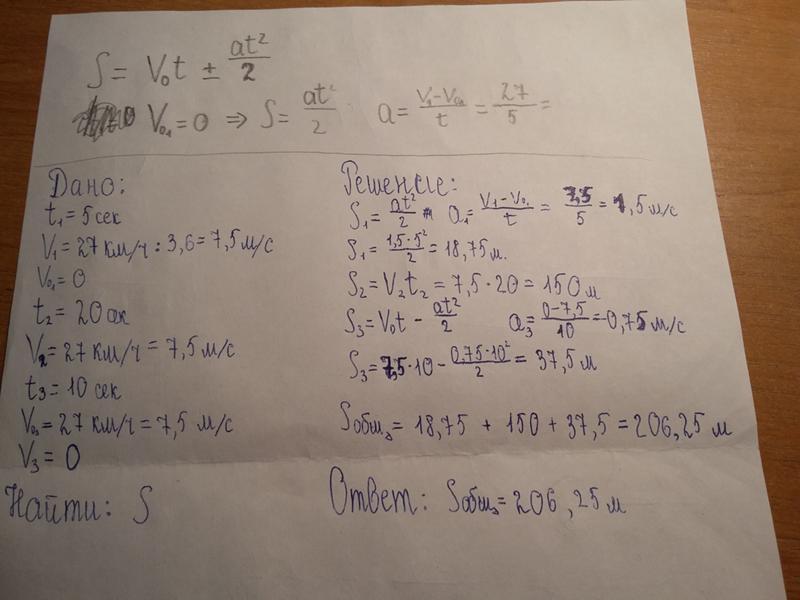 S = V₀t ± at²/2
V₀₁ = 0 ⇒ S = at²/2 a = V₁-V₀₁/t = 27/5 =
Дано:
t₁ = 5 сек
V₁ = 27 км/ч : 3,6 = 7,5 м/с
V₀₁ = 0
t₂ = 20 сек
V₂ = 27 км/ч = 7,5 м/с
t₃ = 10 сек
V₀₃ = 27 км/ч = 7,5 м/с
V₃ = 0
Найти: S
Решение:
S₁ = at²/2 a₁ = V₁-V₀₁/t = 7,5/5 = 1,5 м/с
S₁ = 1,5·5²/2 = 18,75 м.
S₂ = V₂t₂ = 7,5·20 = 150 м
S₃ = V₀t - at²/2 a₃ = 0-7,5/10 = -0,75 м/с
S₃ = 7,5·10 - 0,75·10²/2 = 37,5 м
Sобщ = 18,75 + 150 + 37,5 = 206,25 м
Ответ: Sобщ = 206,25 м